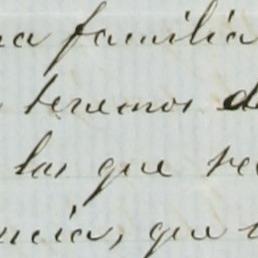 na familia
tenemos de
las que re
ncia, que